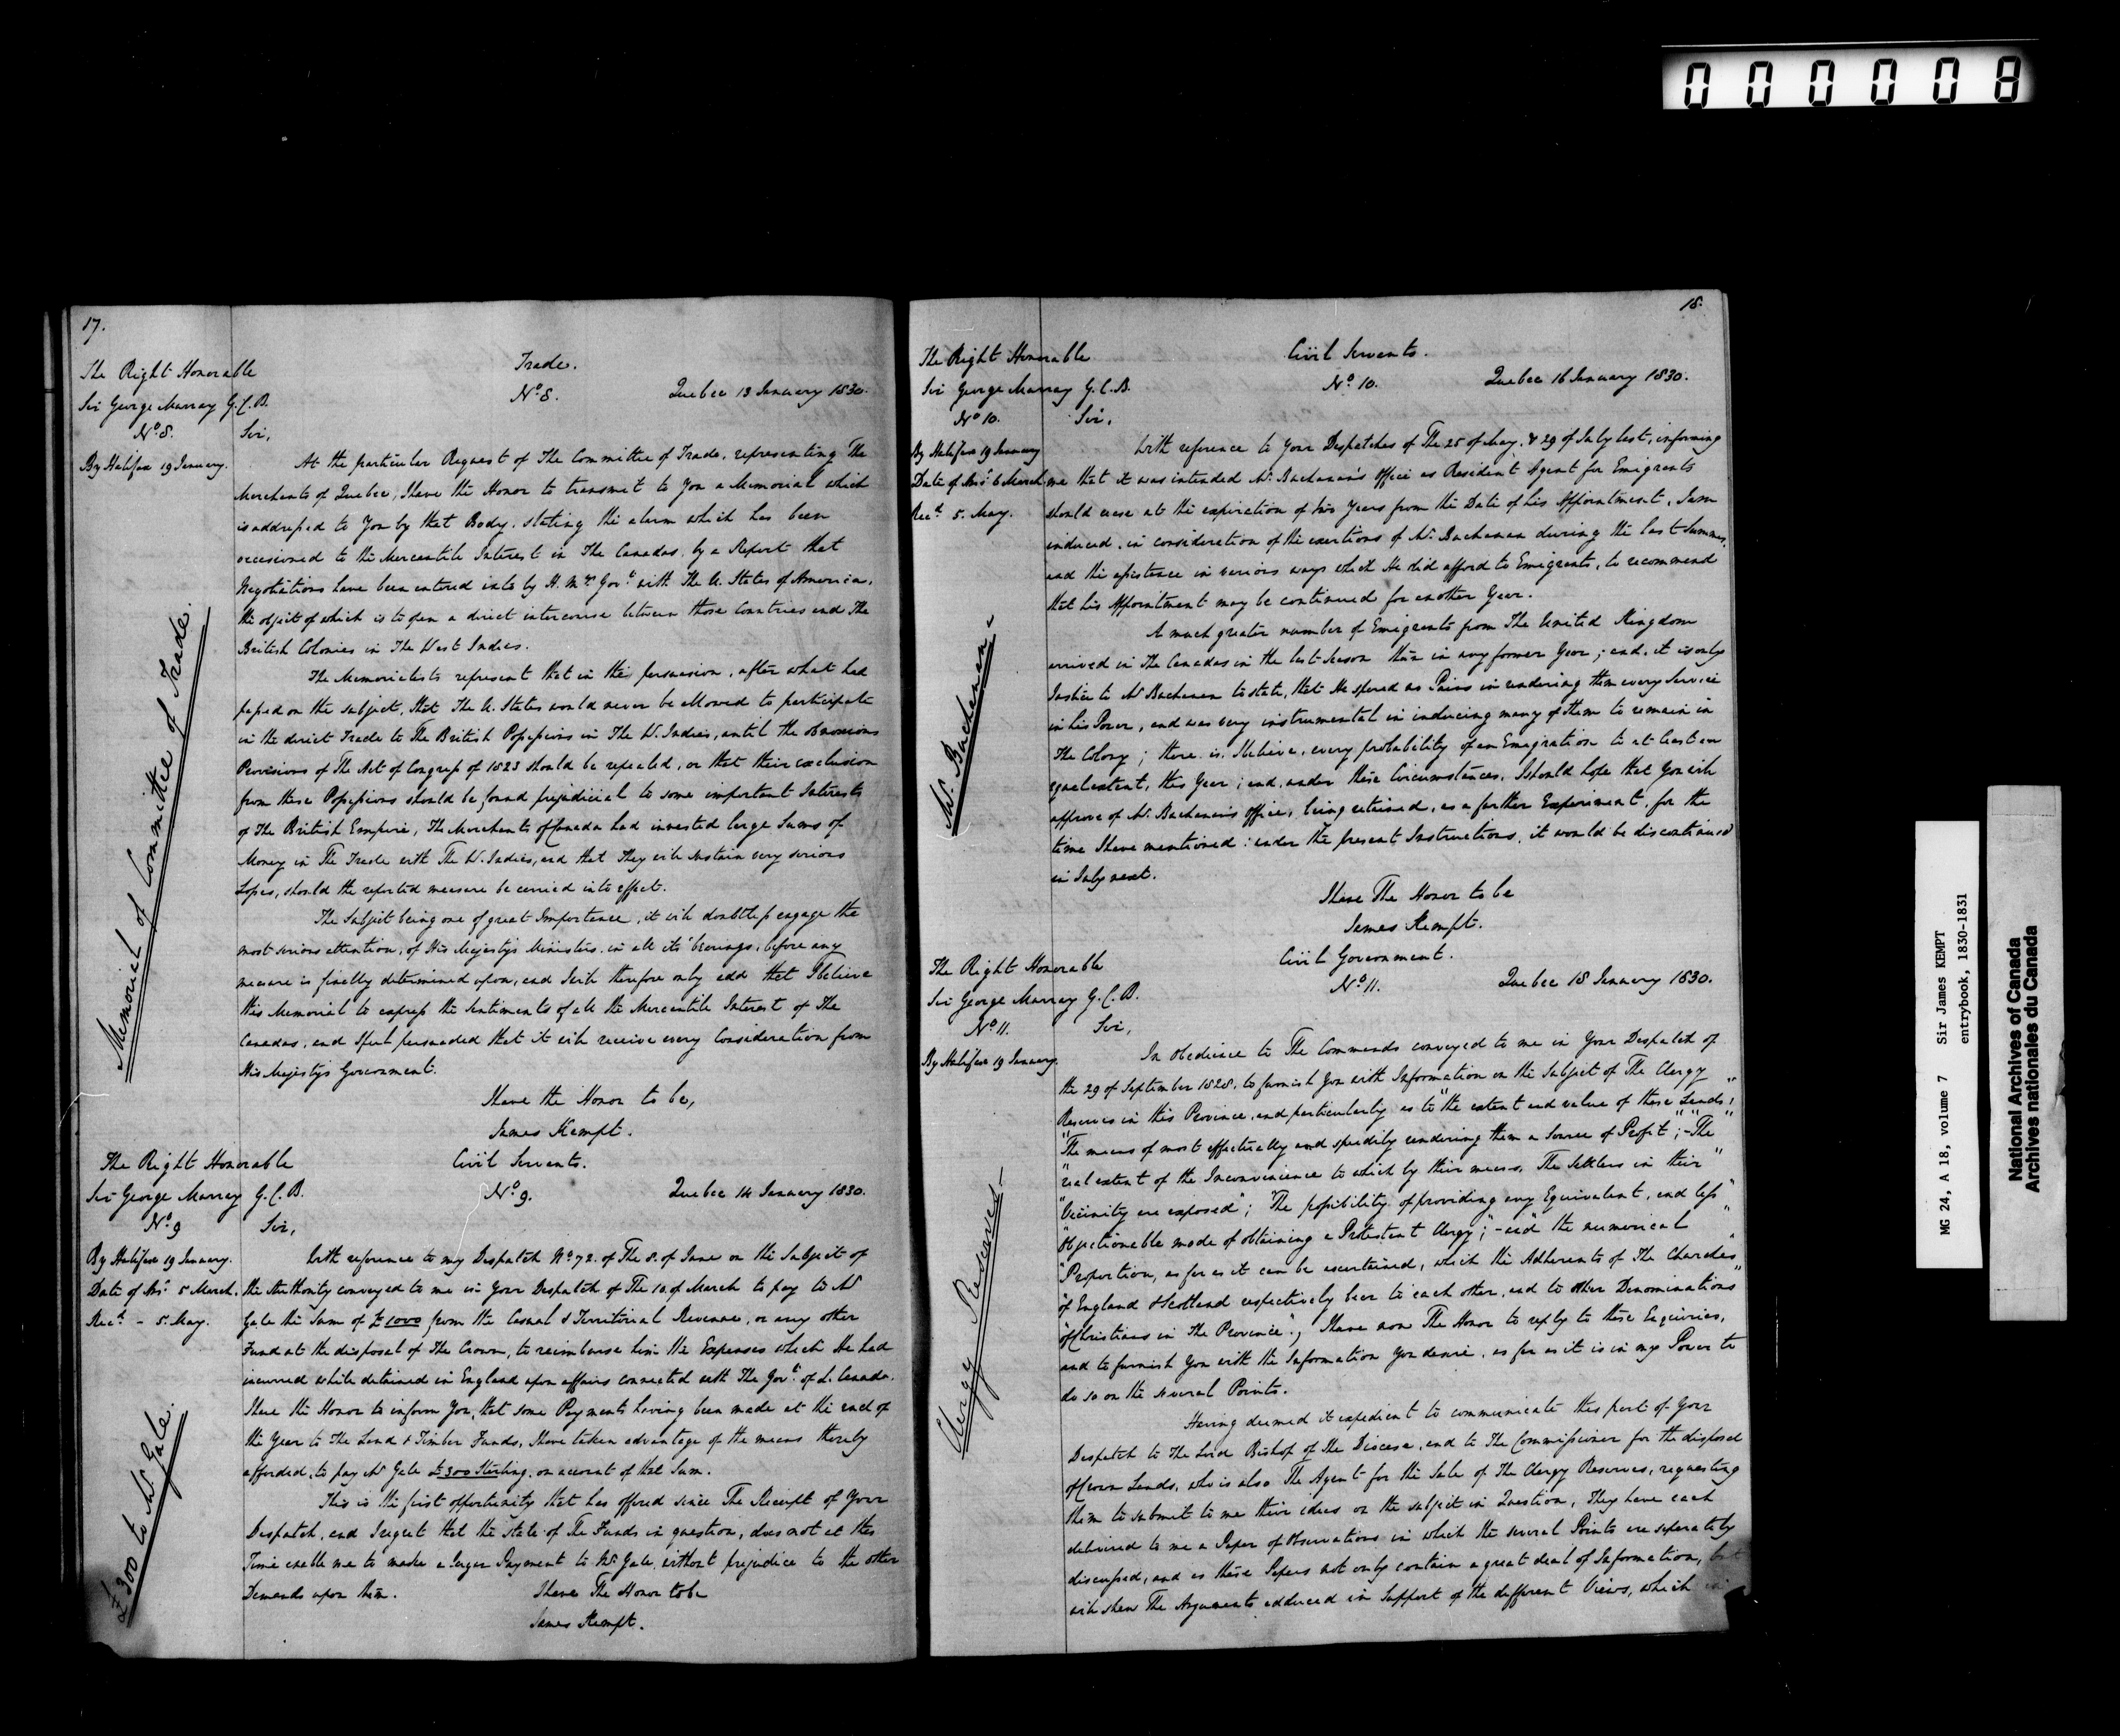 000008
17.
The Right Honorable
Sir George Murray G.C.B.
No. 8.
By Halifax 19 January.
Memorial of Committee of Trade.
Trade.
No. 8. Quebec 13 January 1830.
Sir,
At the particular Request of The Committee of Trade, representing The
Merchants of Quebec, I have the Honor to transmit to You a Memorial which
is addressed to You by that Body, stating the alarm which has been
occasioned to the Mercantile Interest in The Canadas, by a Report that
Negotiations have been entered into by H. M's Govt with The U. States of America,
the object of which is to open a direct intercourse between those Countries and The
British Colonies in The West Indies.
The Memorialists represent that in the persuasion, after what had
passed on the subject, that The U. States would never be allowed to participate
in the direct Trade to The British Possessions in The W. Indies, until the obnoxious
Provisions of The Act of Congress of 1823 should be repealed, or that their exclusion
from these Possessions should be found prejudicial to some important Interests
of The British Empire, The Merchants of Canada had invested large Sums of
Money in The Trade with The W. Indies, and that They will sustain very serious
Losses, should the reported measure be carried into effect.
The Subject being one of great Importance, it will doubtless engage the
most serious attention, of His Majesty's Ministers in all its' bearings, before any
measure is finally determined upon, and I will therefore only add that I believe
this Memorial to express the Sentiments of all the Mercantile Interest of The
Canadas, and I feel persuaded that it will receive every Consideration from
His Majesty's Government.
I have the Honor to be,
James Kempt.
The Right Honorable
Sir George Murray G.C.B.
No. 9
By Halifax 19 January.
Date of Ansr 5 March.
Recd - 5 May.
£300 to Mr Gale.
Civil Servants.
No. 9. Quebec 14 January 1830.
Sir,
With reference to my Despatch No. 72. of The 8. of June on the Subject of
the Authority conveyed to me in Your Despatch of The 10. of March to pay to Mr
Gale the Sum of £1000 from the Casual & Territorial Revenue, or any other
Fund at the disposal of The Crown, to reimburse him the Expenses which He had
incurred while detained in England upon affairs connected with The Govt of L. Canada.
I have the Honor to inform You, that some Payments having been made at the end of
the Year to The Land & Timber Funds, I have taken advantage of the means thereby
afforded, to pay Mr Gale £300 Sterling, on account of that Sum.
This is the first opportunity that has offered since The Receipt of Your
Despatch, and I regret that the State of The Funds in question, does not at this
Time enable me to make a larger Payment to Mr Gale, without prejudice to the other
Demands upon them. I have The Honor to be
James Kempt.
18.
The Right Honorable
Sir George Murray G.C.B.
No. 10.
By Halifax 19 January
Date of Ansr 6 March
Recd 5. May.
Mr. Buchanan.
Civil Servants.
No. 10. Quebec 16 January 1830.
Sir,
With reference to Your Despatches of The 25 of May, & 29 of July last, informing
me that it was intended Mr. Buchanan's Office as Resident Agent for Emigrants
should cease at the expiration of two Years from the Date of his Appointment, I am
induced, in consideration of the exertions of Mr. Buchanan during the last Summer,
and the assistance in various ways which He did afford to Emigrants, to recommend
that his Appointment may be continued for another Year.
A much greater number of Emigrants from The United Kingdom
arrived in The Canadas in the last Season than in any former Year; and, it is only
Justice to Mr Buchanan to state, that He spared no Pains in rendering them every Service
in his Power, and was very instrumental in inducing many of them to remain in
The Colony; there is, I believe, every probability of an Emigration to at least an
equal extent, this Year; and, under these Circumstances, I should hope that You will
approve of Mr. Buchanan's Office, being retained, as a further Experiment, for the
time I have mentioned: under the present Instructions, it would be discontinued
in July next.
I have The Honor to be
James Kempt.
The Right Honorable
Sir George Murray G.C.B.
No. 11.
By Halifax 19 January.
Clergy Reserves
Civil Government.
No. 11. Quebec 18 January 1830.
Sir,
In obedience to The Commands conveyed to me in Your Despatch of
the 29 of September 1828, to furnish You with Information on the Subject of The Clergy
Reserves in this Province, and particularly as to "the extent and value of these Lands,"
"The means of most effectually and speedily rendering them a Source of Profit"; - "The"
"real extent of the Inconvenience to which by their means, The Settlers in their"
"Vicinity are exposed"; "The possibility of providing any Equivalent, and less"
"Objectionable mode of obtaining a Protestant Clergy"; - and "the numerical"
"Proportion, as far as it can be ascertained, which the Adherents of The Churches"
"of England & Scotland respectively bear to each other, and to other Denominations"
"of Christians in The Province"., I have now The Honor to reply to these Enquiries,
and to furnish You with the Information You desire, as far as it is in my Power to
do so on the several Points.
Having deemed it expedient to communicate this part of Your
Despatch to The Lord Bishop of the Diocese, and to The Commissioner for the disposal
of Crown Lands, who is also The Agent for the Sale of The Clergy Reserves, requesting
them to submit to me their ideas on the subject in Question, They have each
delivered to me a Paper of Observations in which the several Points are separately
discussed, and as these Papers not only contain a great deal of Information, but
will shew The Arguments adduced in Support of the different Views, which
MG 24, A 18, volume 7 Sir James KEMPT
entrybook, 1830-1831
National Archives of Canada
Archives nationales du Canada